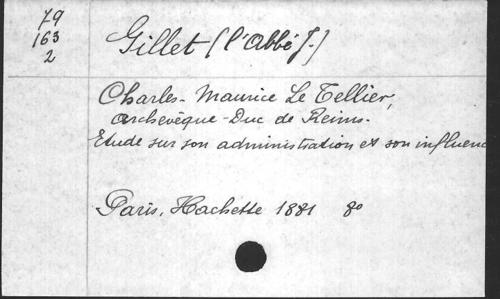 79
163
2
Gillet (l'Abbé J.)
Charles-Maurice Le Tellier,
Archevêque-Duc de Reims.
Etude sur son administration et son influenc
Paris, Hachette 1881 8°